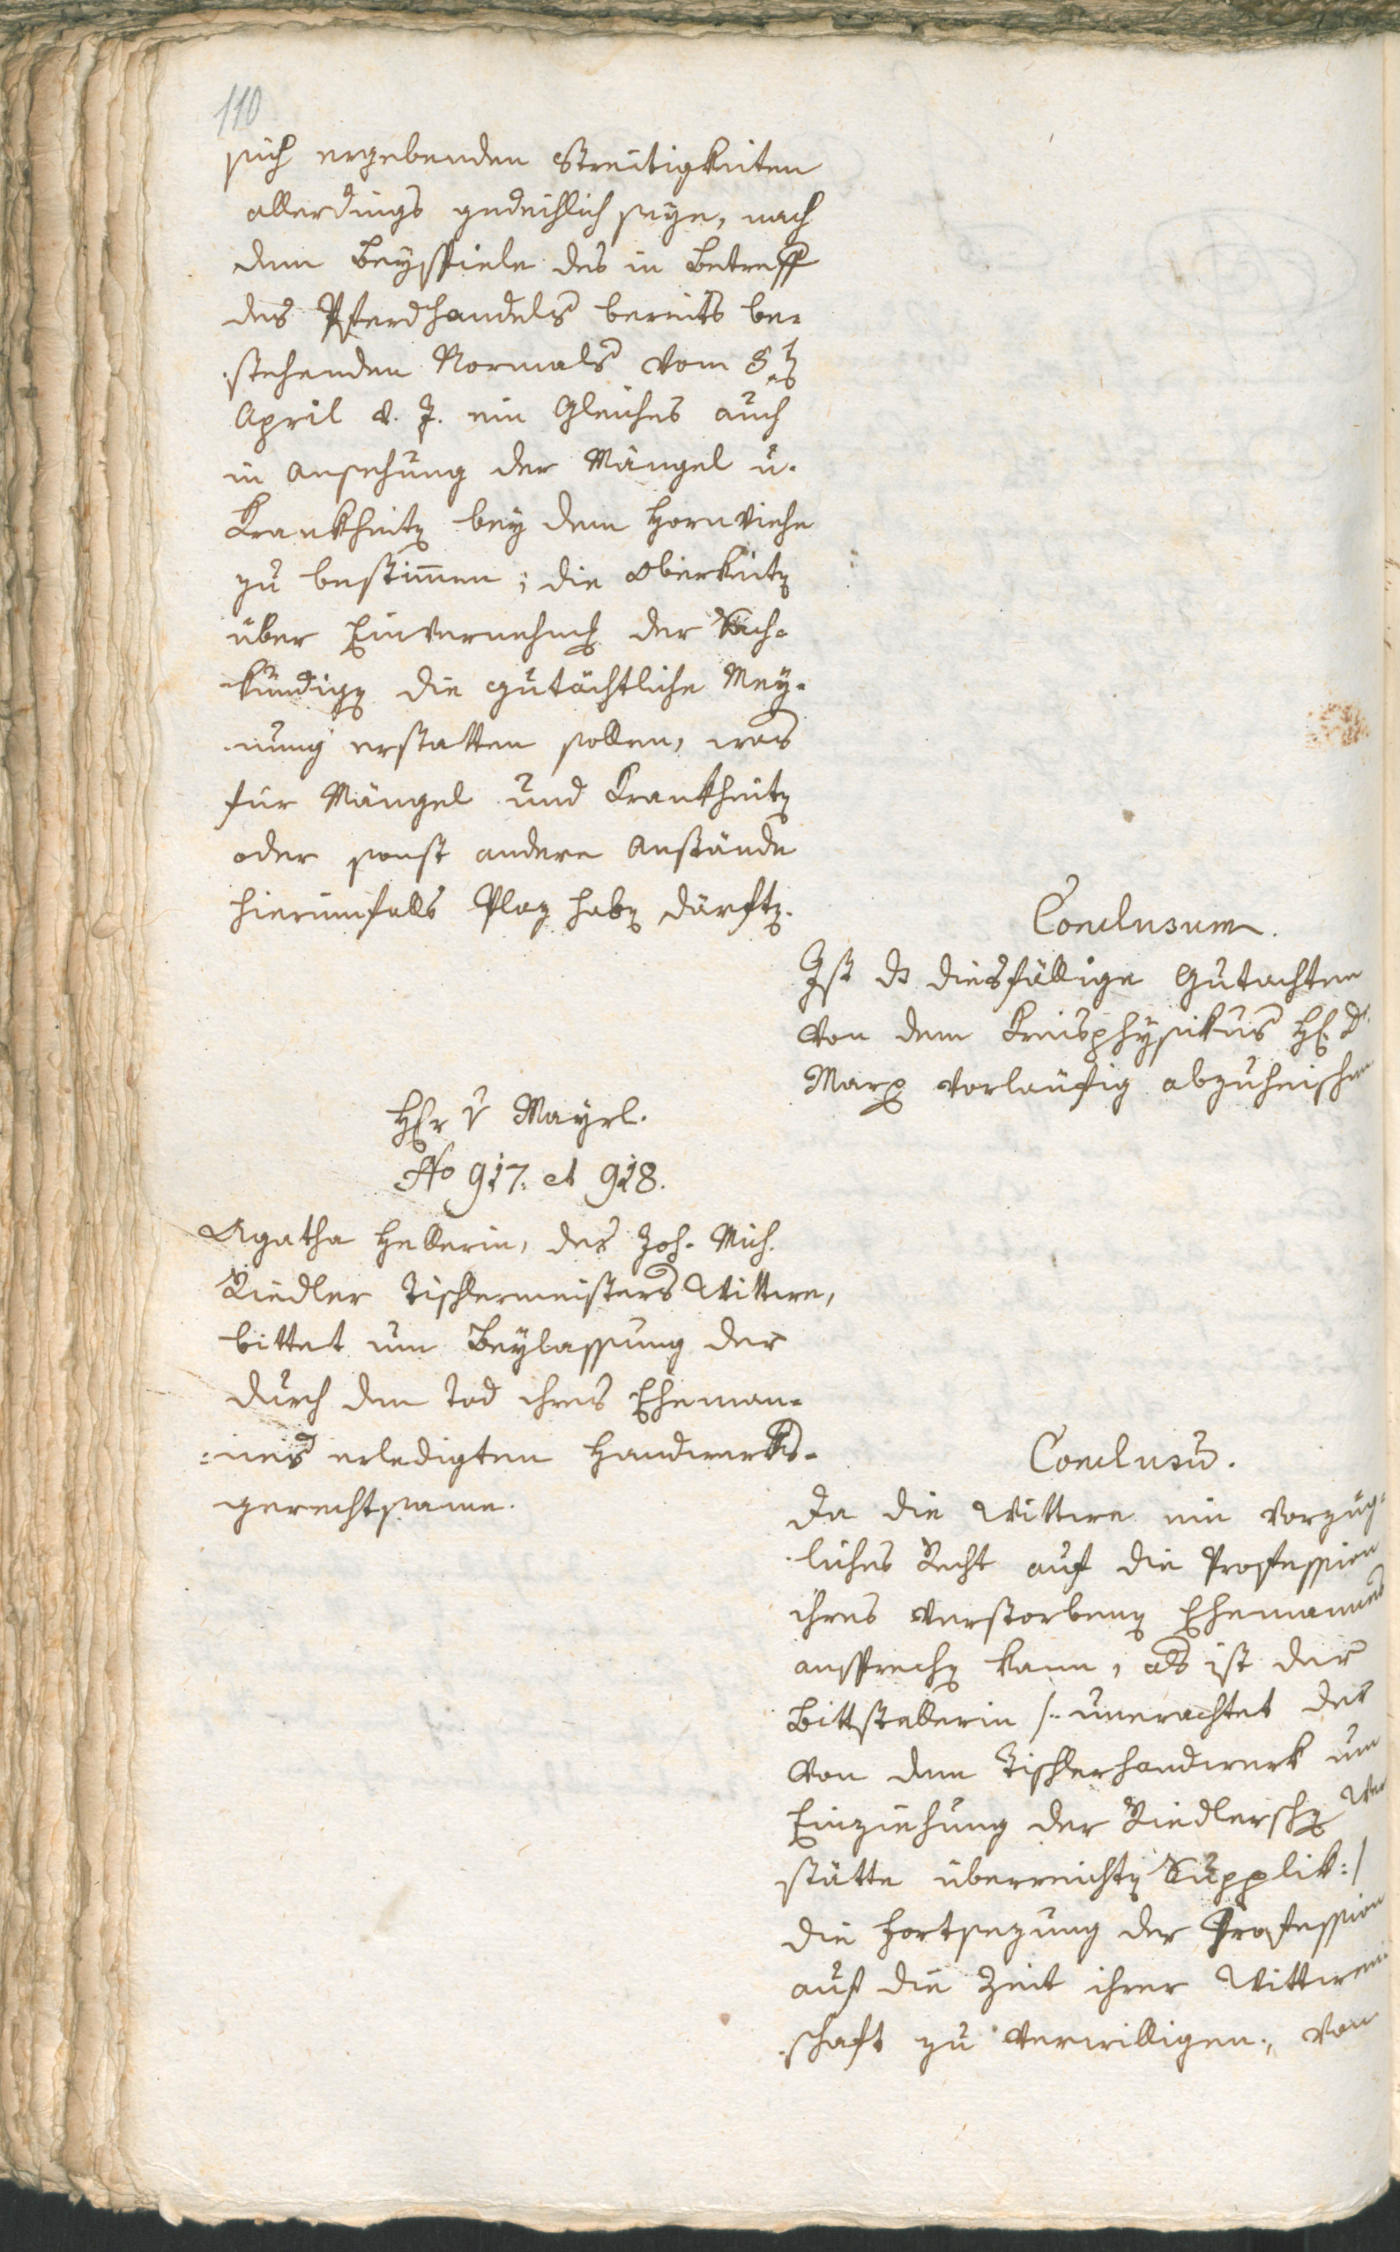 110
sich ergebenden Streitigkeiten
allerdings gedeihlich seye, nach
dem Beyspiele des in Betreff
des Pferdhandels bereits be-
stehenden Normals vom 8ten
April d. J. ein Gleiches auch
in Ansehung der Mängel u.
Krankheiten bey dem Hornviehe
zu bestimmen; die Oberkeiten
über Einvernehmen der Sach-
kündigen die gutächtliche Mey-
nung erstatten sollen, was
für Mängel und Krankheiten
oder sonst andere Anstände
hierinfalls Plaz haben därften.
Conclusum.
Ist ds diesfällige Gutachten
von dem Kreisphysikus H. Dr
Marx vorläufig abzuheischen
Herr v Mayrl.
No 917. et 918.
Agatha Hellerin, des Joh. Mich.
Riedler Tischlermeisters Wittwe,
bittet um Beylassung der
durch den Tod ihres Eheman-
nes erledigten Handwerks-
gerechtsame.
Conclusū.
Da die Wittwe ein vorzüg-
liches Recht auf die Profession
ihres verstorbenen Ehemannes
ansprechen kann, als ist der
Bittstellerin /: unerachtet der
von dem Tischlerhandwerk um
Einziehung der Riedlerschen Wer
stätte überreichten Supplik :/
die Fortsezung der Profession
auf die Zeit ihrer Wittwen
schaft zu verwilligen, von